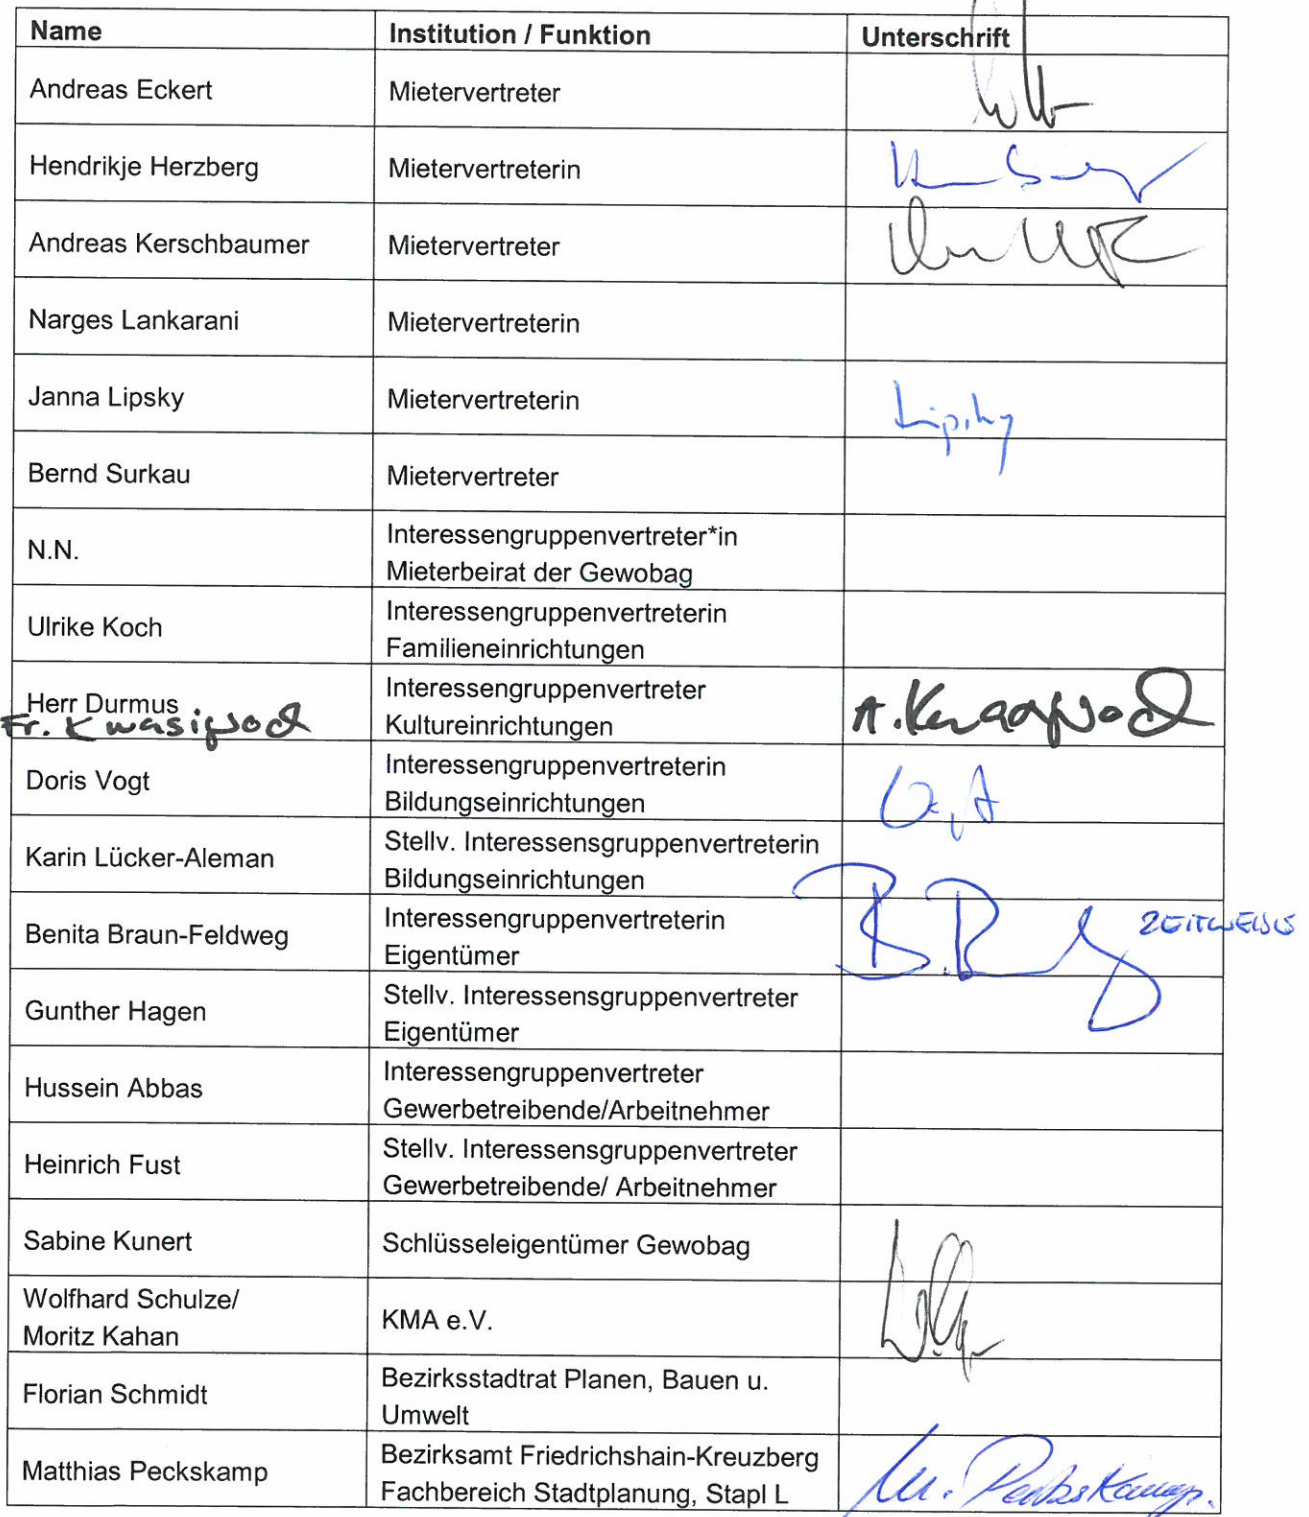 Name Institution / Funktion Unterschrift
Andreas Eckert Mietervertreter
Hendrikje Herzberg Mietervertreterin
Andreas Kerschbaumer Mietervertreter
Narges Lankarani Mietervertreterin
Janna Lipsky Mietervertreterin Lipsky
Bernd Surkau Mietervertreter
N.N. Interessengruppenvertreter*in
Mieterbeirat der Gewobag
Ulrike Koch Interessengruppenvertreterin
Familieneinrichtungen
Herr Durmus Interessengruppenvertreter
Fr. Kwasigroch Kultureinrichtungen A. Kwasigroch
Doris Vogt Interessengruppenvertreterin
Bildungseinrichtungen
Karin Lücker-Aleman Stellv. Interessensgruppenvertreterin
Bildungseinrichtungen
Benita Braun-Feldweg Interessengruppenvertreterin
Eigentümer ZEITWEISE
Gunther Hagen Stellv. Interessensgruppenvertreter
Eigentümer
Hussein Abbas Interessengruppenvertreter
Gewerbetreibende/Arbeitnehmer
Heinrich Fust Stellv. Interessensgruppenvertreter
Gewerbetreibende/ Arbeitnehmer
Sabine Kunert Schlüsseleigentümer Gewobag
Wolfhard Schulze/
Moritz Kahan KMA e.V.
Florian Schmidt Bezirksstadtrat Planen, Bauen u.
Umwelt
Matthias Peckskamp Bezirksamt Friedrichshain-Kreuzberg
Fachbereich Stadtplanung, Stapl L M. Peckskamp